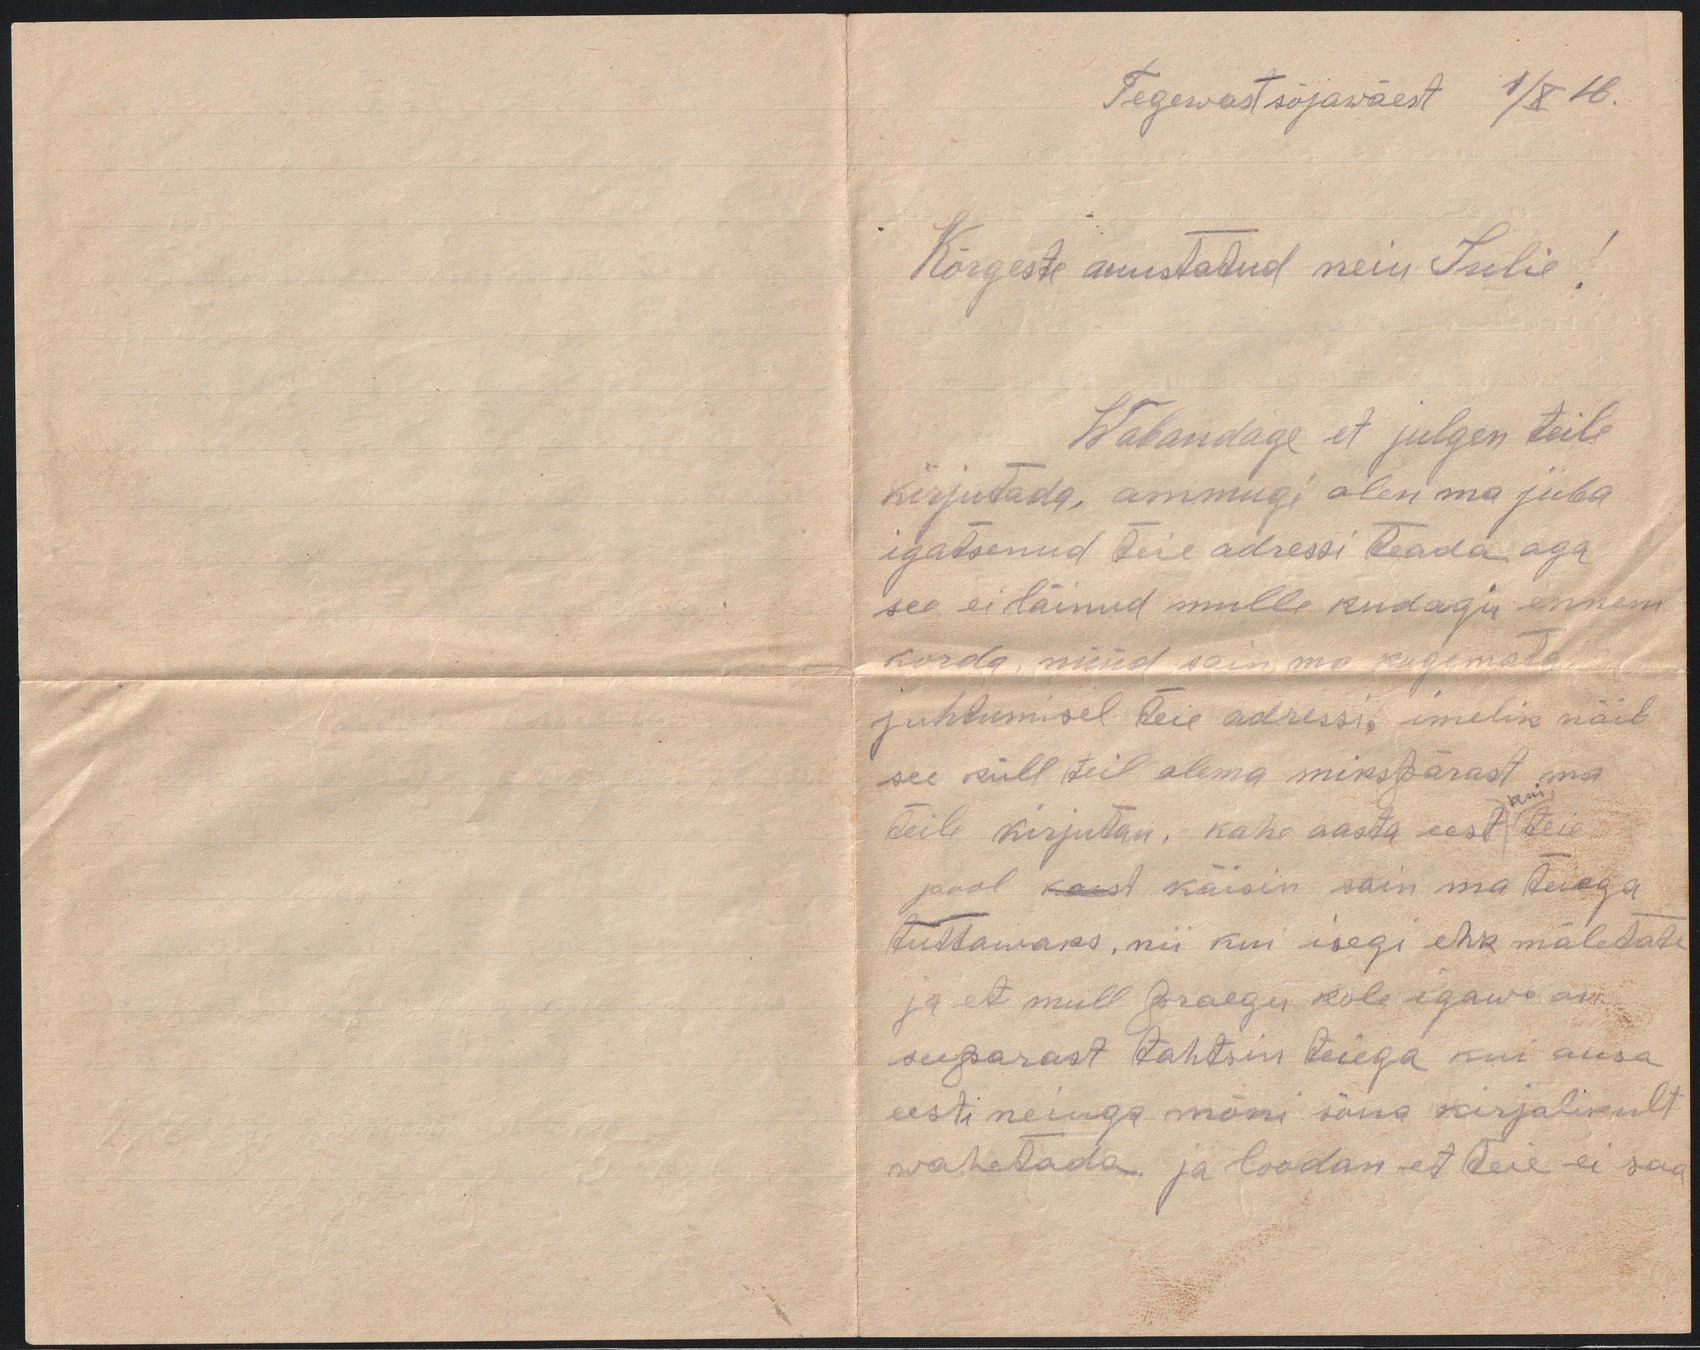 Tegewast sõjawäest 1/X 16.
Kõrgeste auustatud neiu Julie!
Wabandage et julgen teile
kirjutada, ammugi olen ma juba
igatsenud teie adressi teada aga
see ei läinud mulle kudagi ennem
korda, nüüd sain ma kogemata
juhtumisel teie adressi, imelik näib
see küll teil olema mikspärast ma
teile kirjutan, kahe aasta eest kui teie
pool käisin sain ma teiega
tuttawaks, nii kui isegi ehk mäletate
ja et mull praegu kole igaw on
seeparast tahtsin teiega kui ausa
eesti neiuga mõni sõna kirjalikult
wahetada ja loodan et teie ei saa